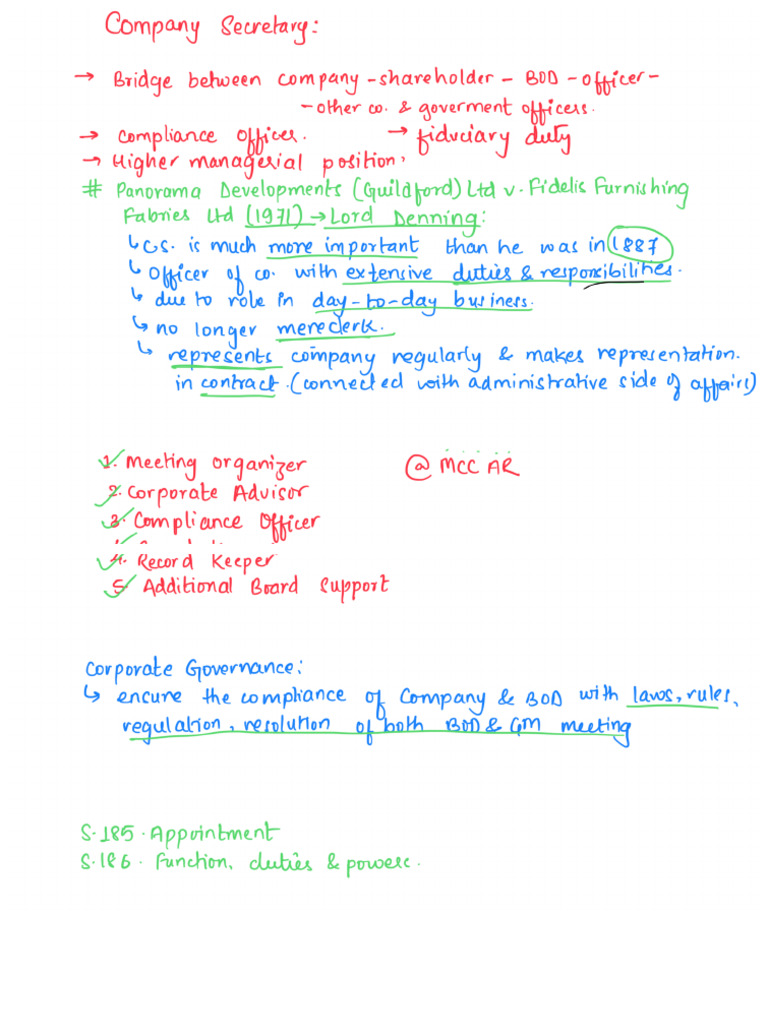 Company Secretary:
→ Bridge between company - shareholder - BOD - officer -
- other co. & goverment officers.
→ compliance officer. → fiduciary duty
→ Higher managerial position.
# Panorama Developments (Guildford) Ltd v. Fidelis Furnishing
Fabries Ltd (1971) → Lord Denning:
↳ C.S. is much more important than he was in 1887
↳ Officer of co. with extensive duties & responsibilities.
↳ due to role in day-to-day business.
↳ no longer mereclerk.
↳ represents company regularly & makes representation.
in contract. (connected with administrative side of affairs)
1. Meeting organizer @ MCCAR
2. Corporate Advisor
3. Compliance Officer
4. Record Keeper
5. Additional Board Support
Corporate Governance:
↳ encure the compliance of Company & BOD with laws, rules,
regulation, resolution of both BOD & GM meeting
S.185. Appointment
S.186. Function, duties & powers.